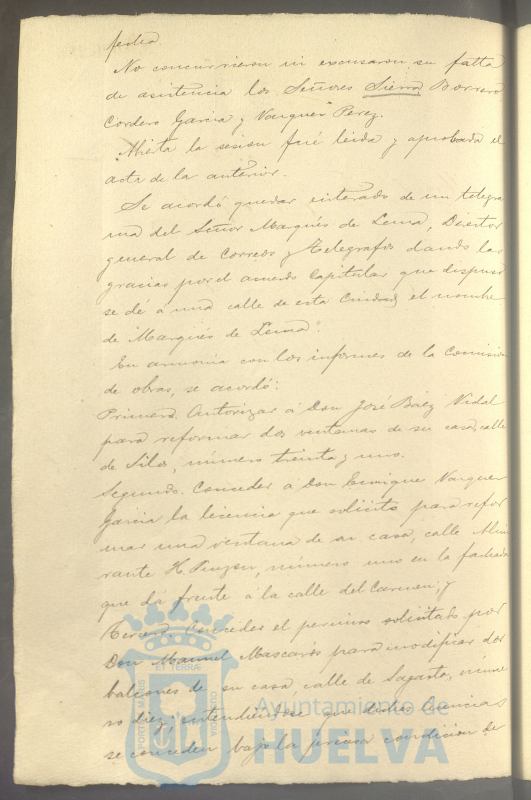 fecha.
No concurrieron ni excusaron su falta
de asistencia los Señores Sierra Borrero
Cordero Garcia y Vazquez Perez.
Abierta la sesion fué leida y aprobada el
acta de la anterior.
Se acordó quedar enterado de un telegra
ma del Señor Marqués de Lema, Director
general de Correos y Telegrafos dando las
gracias por el acuerdo Capitular que dispuso
se dé á una calle de esta Ciudad el nombre
de Marqués de Lema.
En armonia con los informes de la Comision
de obras, se acordó:
Primero. Autorizar á Don José Báez Vidal
para reformar dos ventanas de su casa calle
de Silos, número treinta y uno.
Segundo. Conceder á Don Enrique Vazquez
Garcia la licencia que solicita para refor
mar una ventana de su casa, calle Almi
rante H. Pinzon, número uno en la fachada
que dá frente á la calle del Carmen; y
Tercero. Conceder el permiso solicitado por
Don Manuel Mascarós para modificar dos
balcones de su casa, calle de Sagasta, núme
ro diez; entendiendose que dichas licencias
se conceden bajo la precisa condicion de
PORTUS MARIS
ET TERRAE
CUSTODIA
Ayuntamiento de
HUELVA